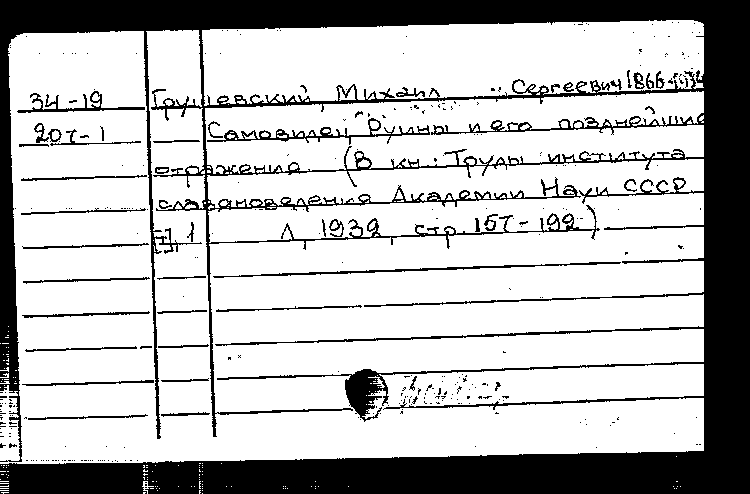 34-19 Грушевский, Михаил Сергеевич 1866-1934
20т-1 Самовидец Руины и его позднейшие
отражения (В кн: Труды института
славяноведения Академии Наук СССР
[т], 1 Л, 1932, стр. 157-192)